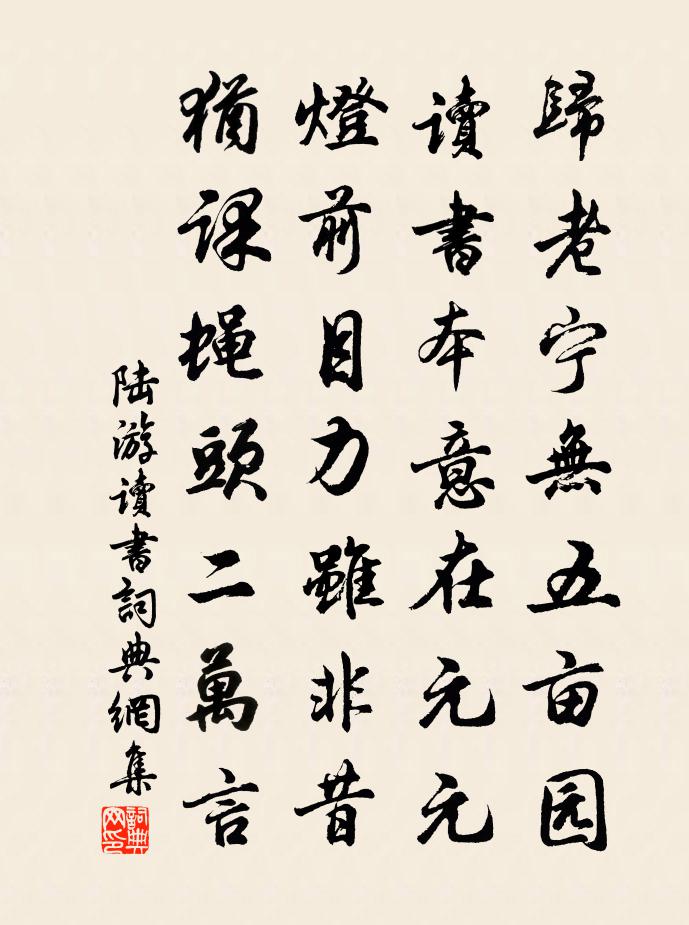 歸老宁無五亩园
讀書本意在元元
燈前目力雖非昔
猶課蝇頭二萬言
陆游讀書詞典網集
詞典网印